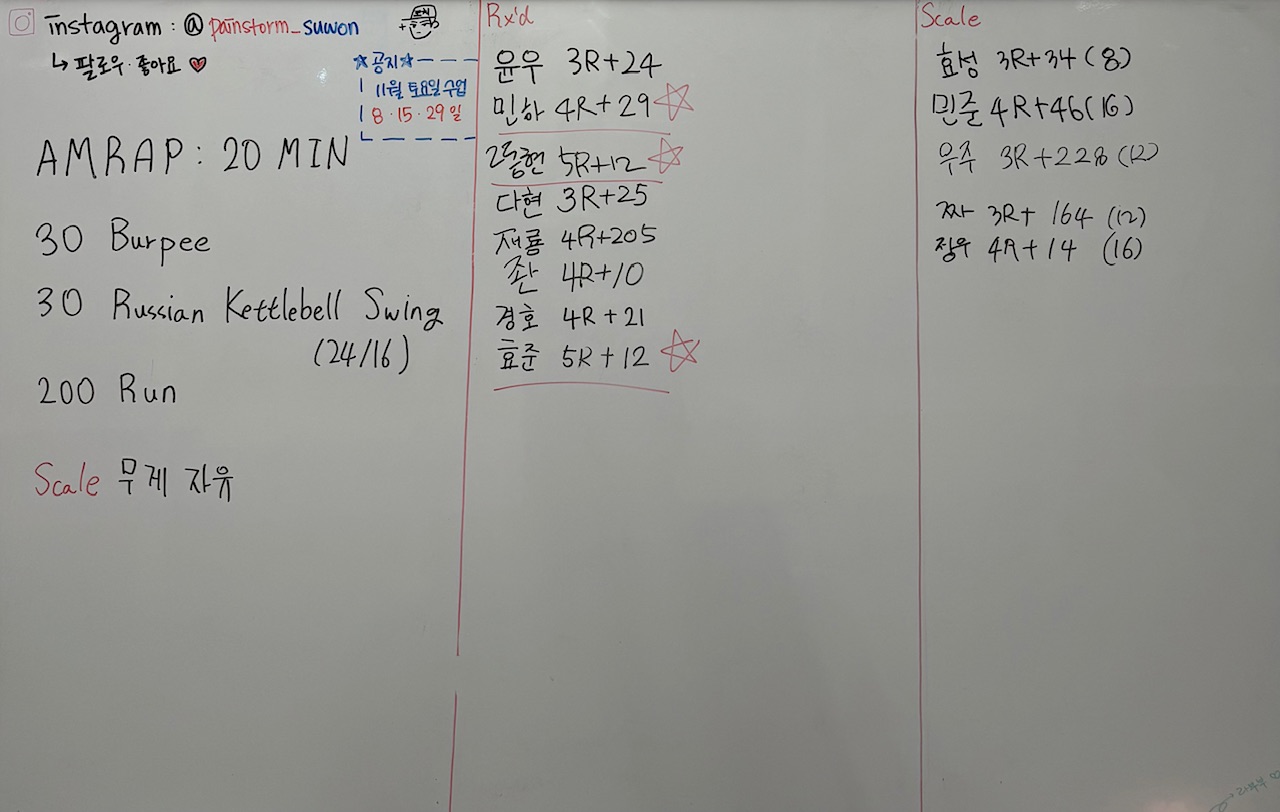 instagram : @ painstorm_suwon
↳ 팔로우·좋아요 ♥
☆공지☆
11월 토요일 수업
8 · 15 · 29 일
AMRAP : 20 MIN
30 Burpee
30 Russian Kettlebell Swing
(24/16)
200 Run
Scale 무게 자유
Rx'd
윤우 3R+24
민하 4R+29 ☆
5R+12 ☆
다현 3R+25
재룡 4R+205
존 4R+10
경호 4R+21
효준 5R+12 ☆
Scale
효성 3R+34 (8)
민준 4R+46 (16)
우주 3R+228 (12)
짜 3R+ 164 (12)
정우 4R+14 (16)